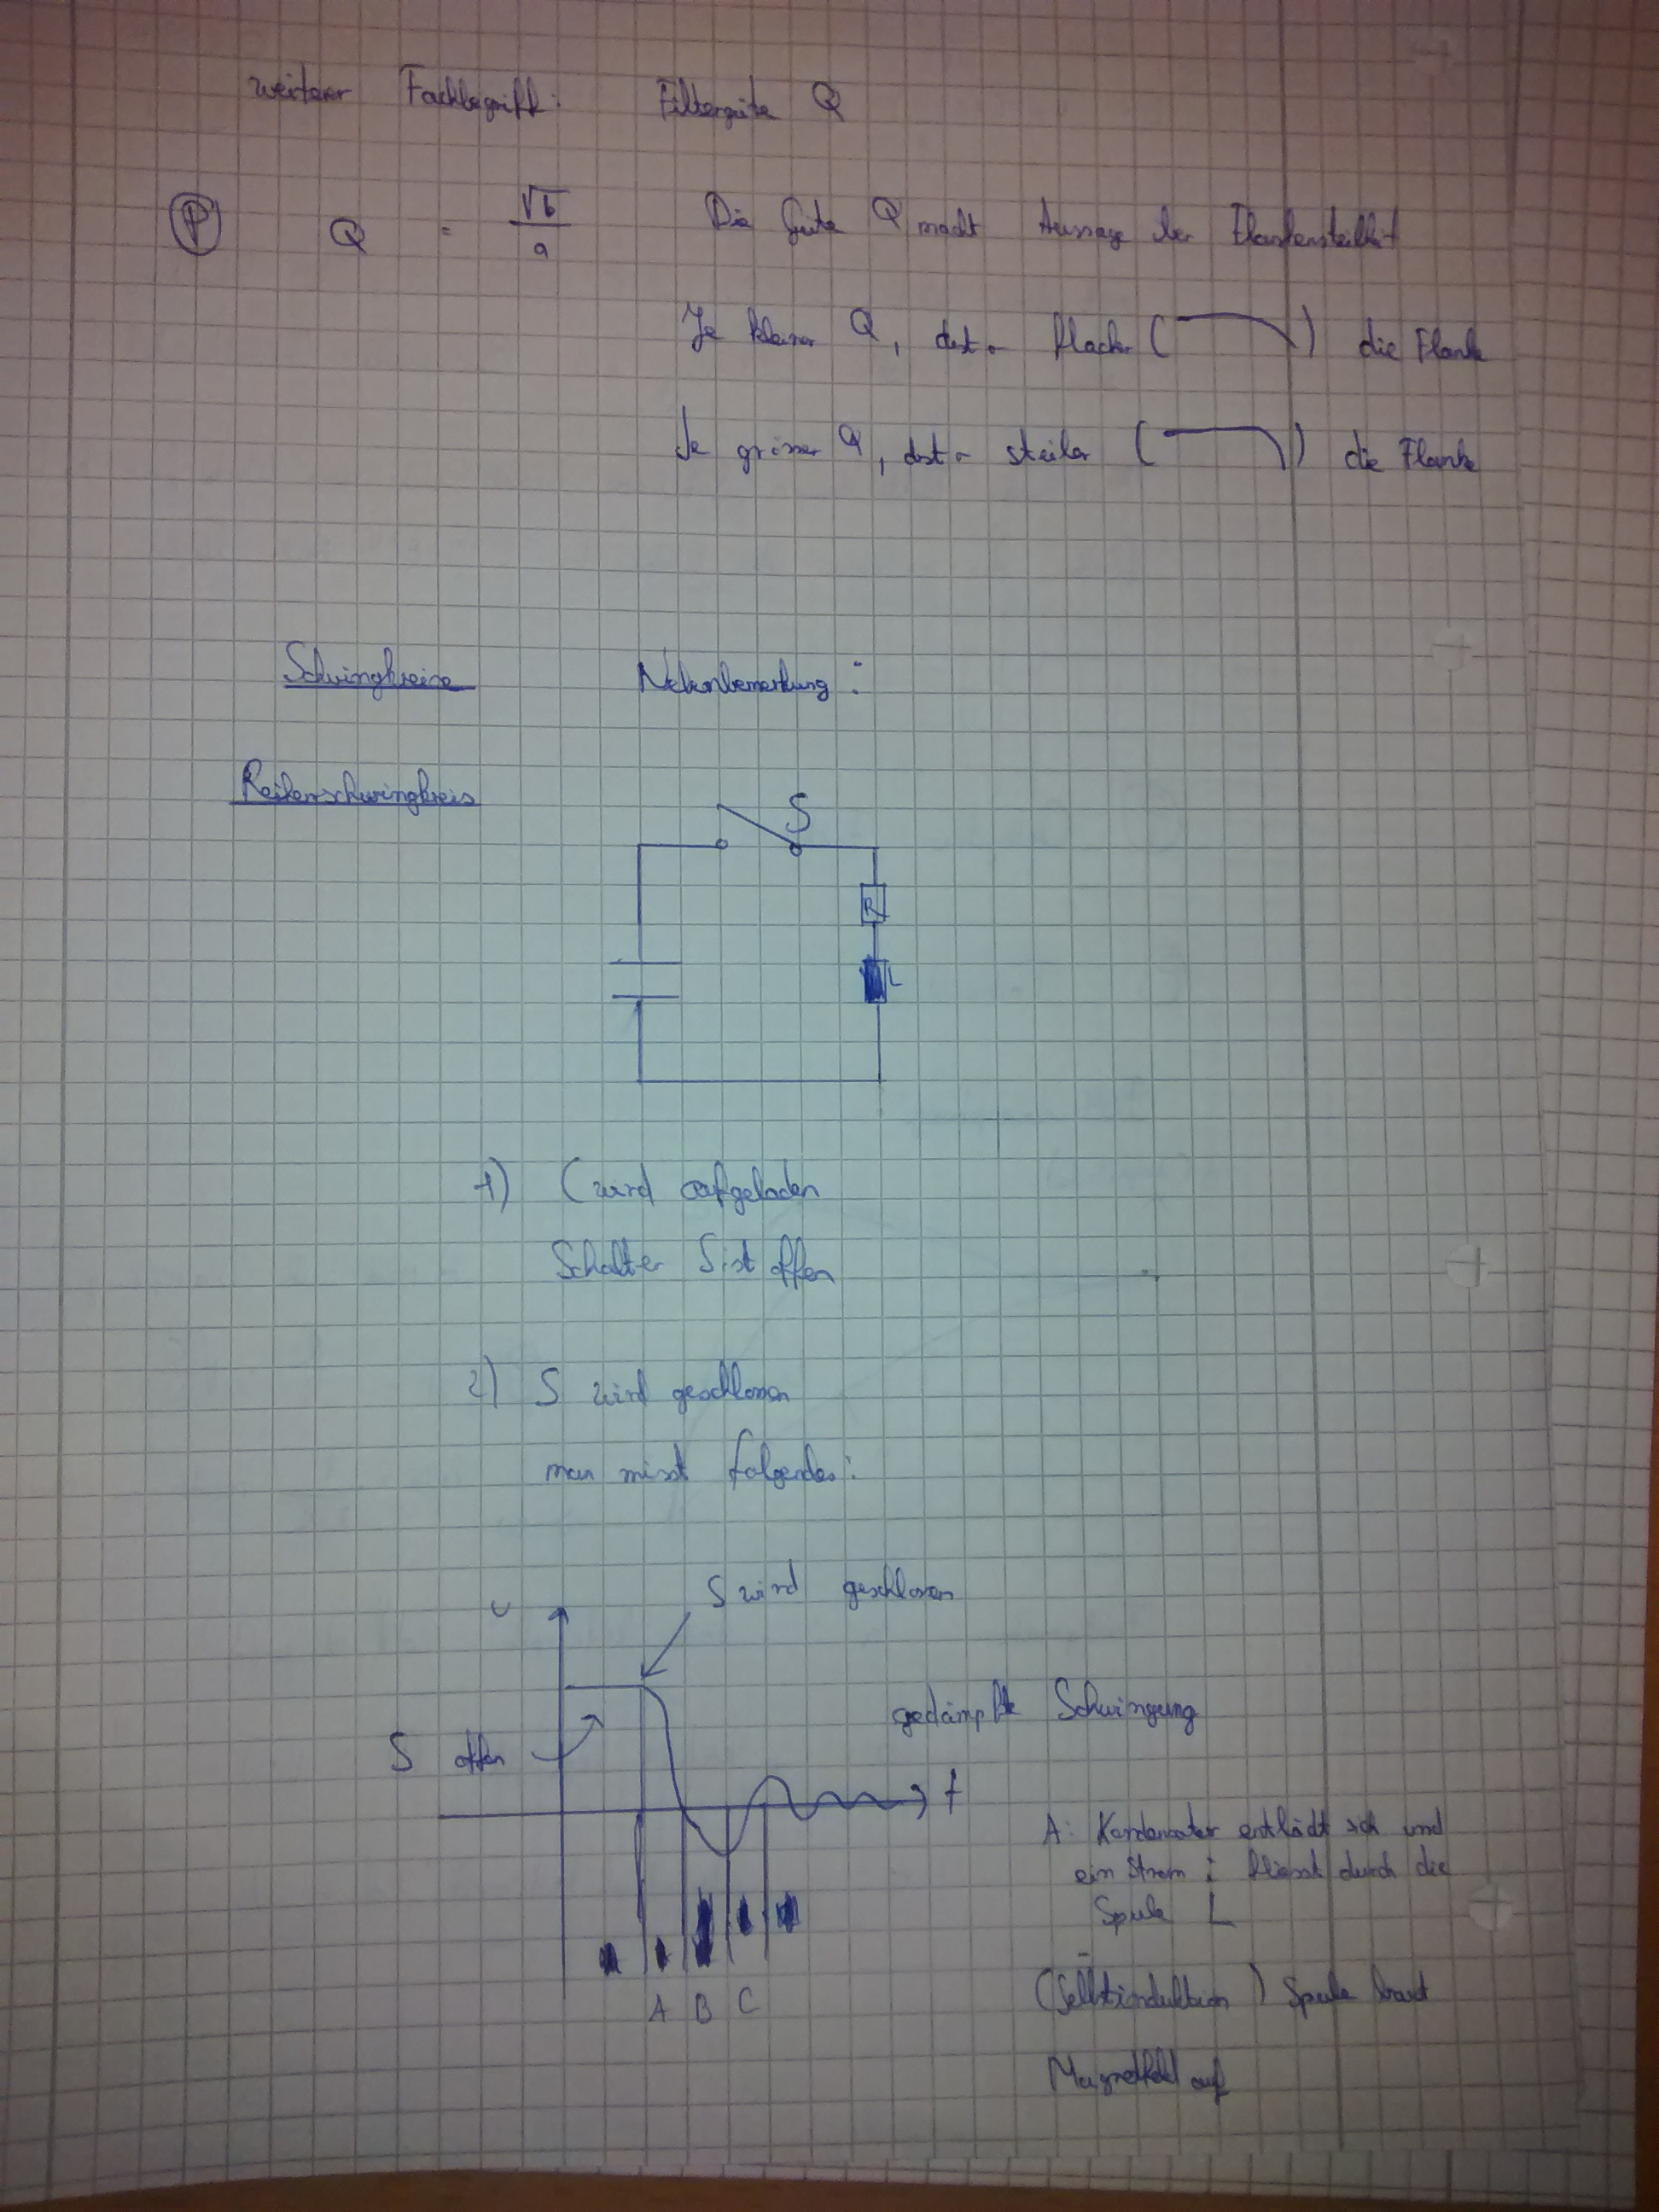 weiterer Fachbegriff: Filtergüte Q
P Q = √b / a Die Güte Q macht Aussage über Flankensteilheit
Je kleiner Q, desto flacher ( ) die Flanke
Je grösser Q, desto steiler ( ) die Flanke
Schwingkreise Nebenbemerkung:
Reihenschwingkreis
S
R
L
1) C wird aufgeladen
Schalter S ist offen
2) S wird geschlossen
man misst folgendes:
S wird geschlossen
U
gedämpfte Schwingung
S offen
t
A: Kondensator entlädt sich und
ein Strom i fliesst durch die
Spule L
(Selbstinduktion) Spule baut
A B C
Magnetfeld auf